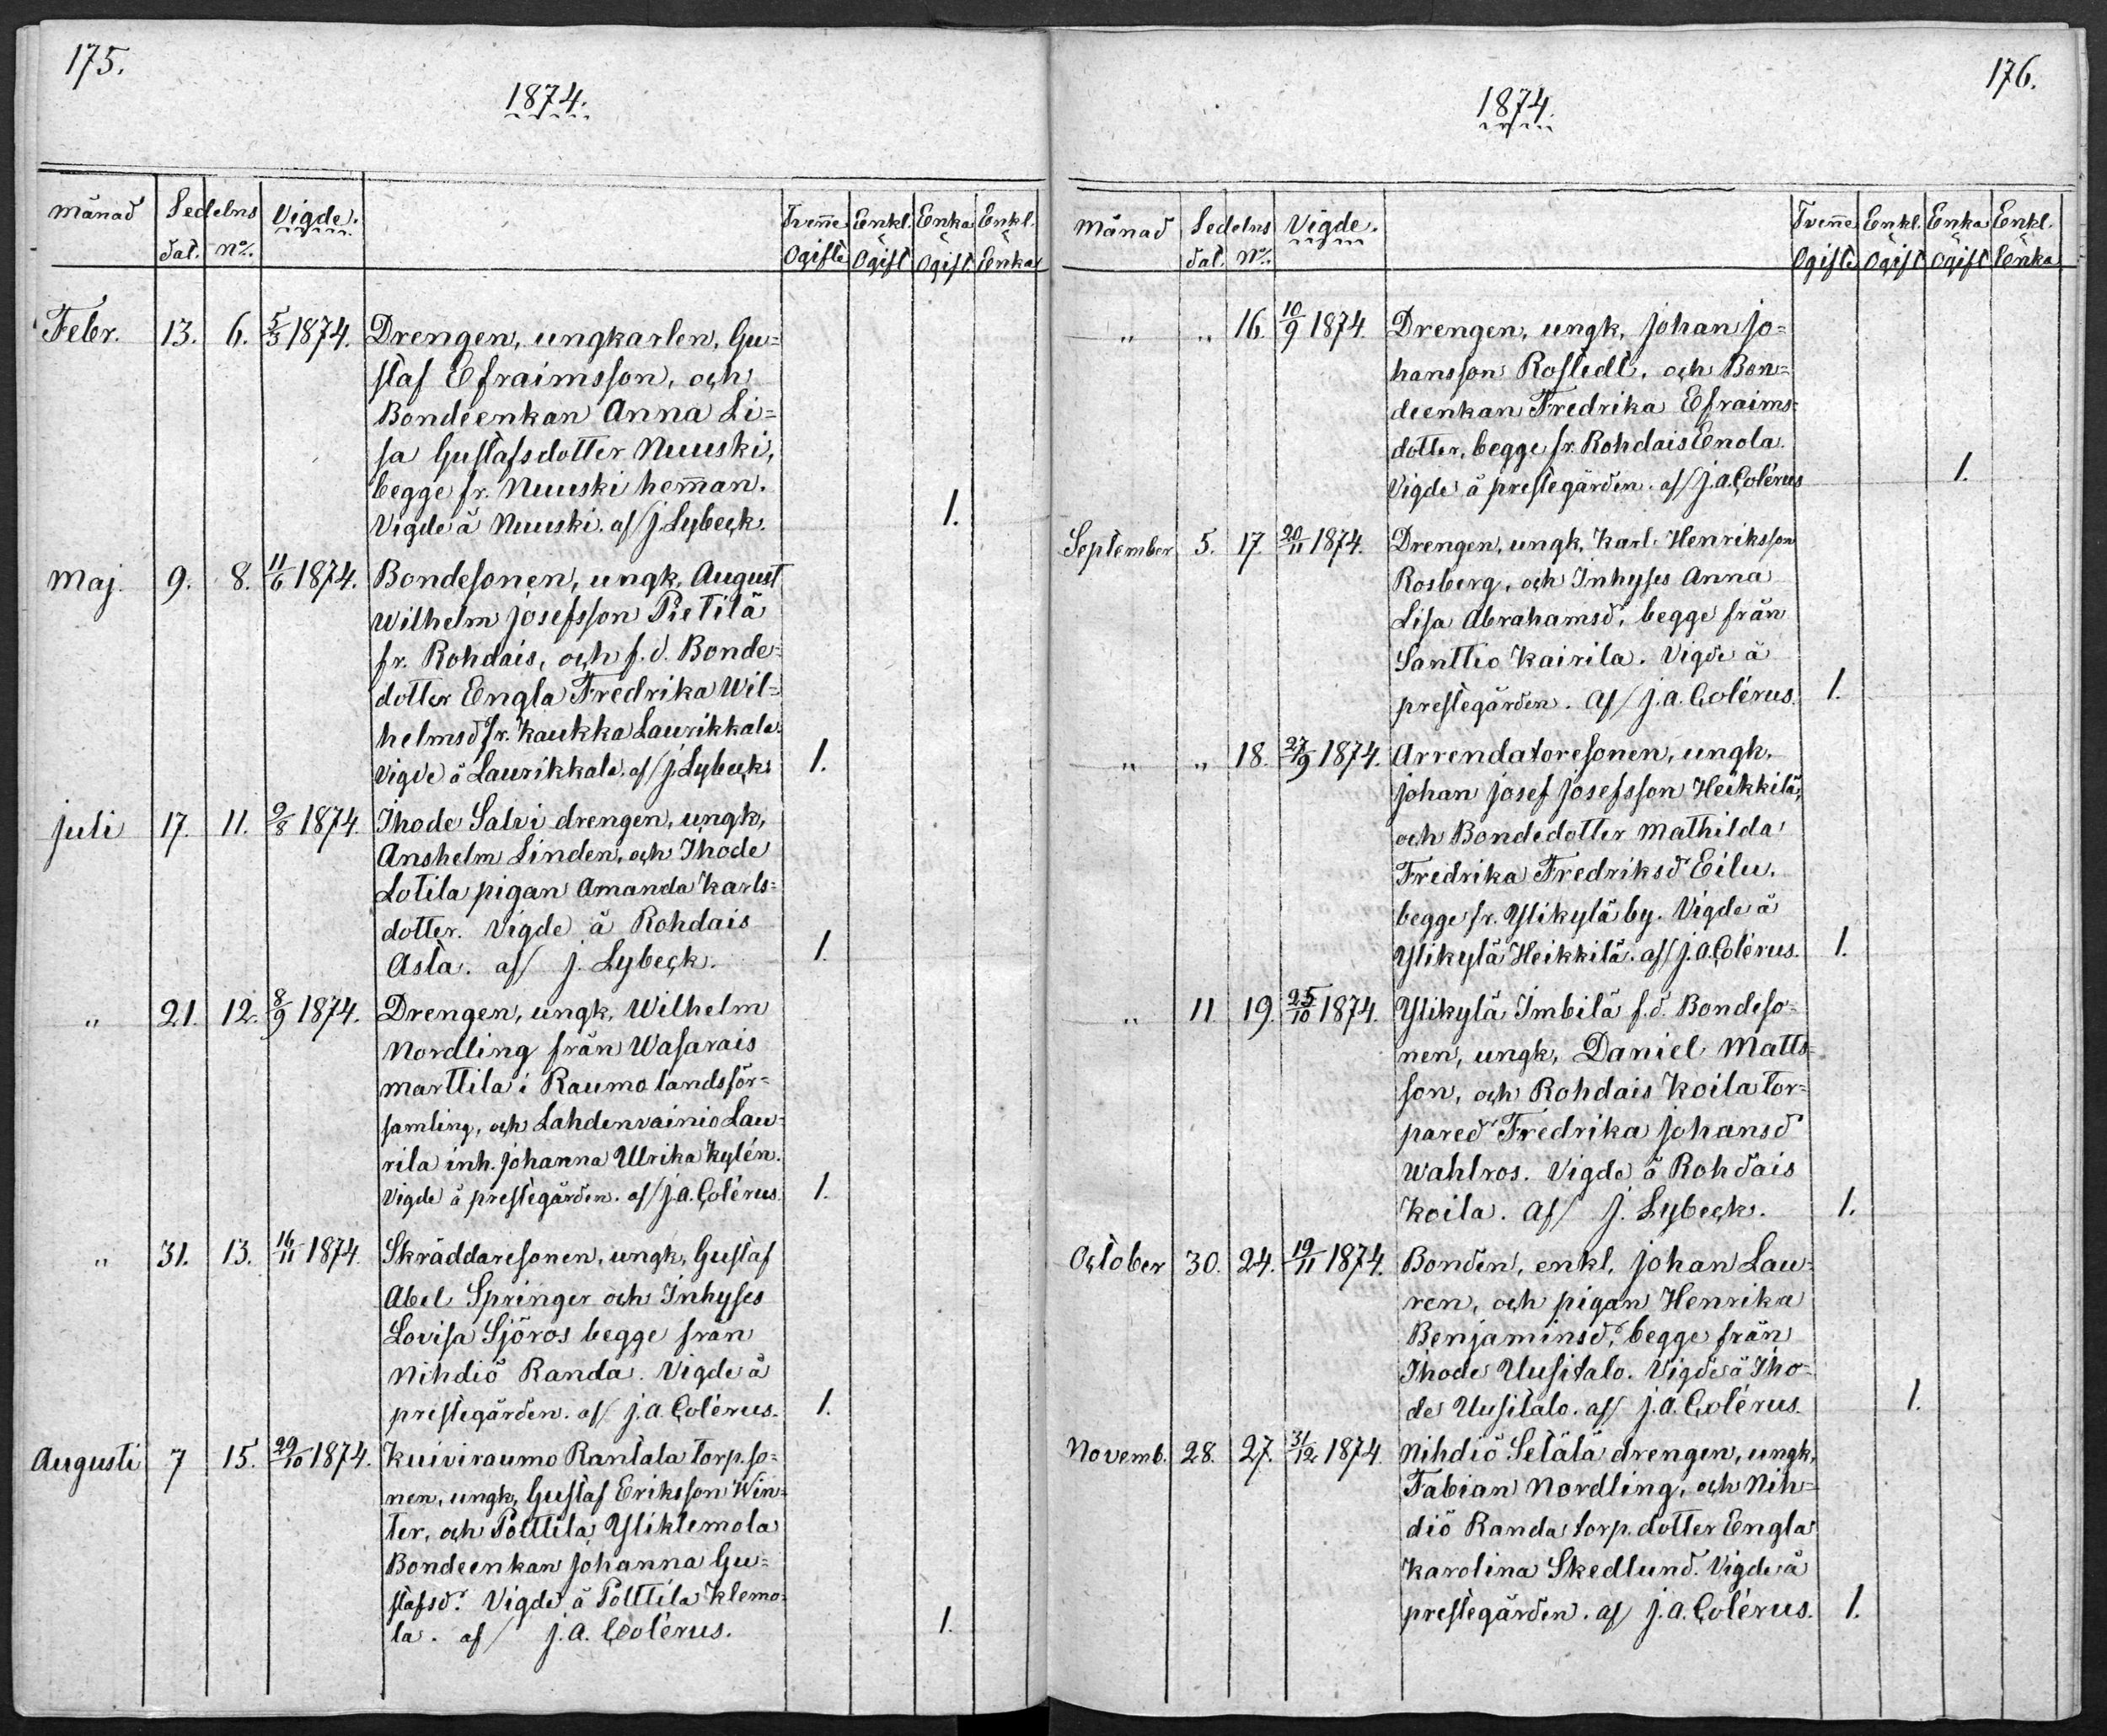 175.
1874.
Månad Sedelns Vigde. Tvenne Enkl. Enka Enkl.
dat. No. Ogifte Ogift Ogift Enka
Febr. 13. 6. 5/3 1874. Drengen, ungkarlen, Gu=
staf Efraimsson, och
Bondeenkan Anna Li=
sa Gustafsdotter Nuuski,
begge fr. Nuuski hemman.
Vigde å Nuuski. af/ J. Lybeck. 1.
Maj. 9. 8. 11/6 1874. Bondesonen, ungk, August
Wilhelm Josefsson Pietilä
fr. Rohdais, och f.d. Bonde=
dotter Engla Fredrika Wil=
helmsd fr. Kaukka Laurikkala
Vigde å Laurikkala. af/ J. Lybeck 1.
Juli 17. 11. 9/8 1874. Ihode Salvi drengen, ungk,
Anshelm Linden, och Ihode
Lotila pigan Amanda Karls=
dotter. Vigde å Rohdais
Asta. af/ J. Lybeck. 1.
" 21. 12. 8/9 1874. Drengen, ungk, Wilhelm
Nordling från Wasarais
Marttila i Raumo landsför=
samling, och Lahdenvainio Lau=
rila inh. Johanna Ulrika Kylén.
Vigde å prestegården. af/ J.A. Colérus. 1.
" 31. 13. 16/11 1874. Skräddaresonen, ungk, Gustaf
Abel Springer och Inhyses
Lovisa Sjöros begge från
Nihdiö Randa. Vigde å
prestegården. af/ J.A. Colérus. 1.
Augusti 7 15. 29/10 1874. Kuiviraumo Rantala torp. so=
nen, ungk, Gustaf Eriksson Win=
ter, och Polttila Yliklemola
Bondeenkan Johanna Gu=
stafsd. Vigde å Polttila Klemo=
la. af/ J.A. Colérus. 1.
176.
1874.
Månad Sedelns Vigde. Tvenne Enkl. Enka Enkl.
dat. No. Ogifte Ogift Ogift Enka
" " 16. 10/9 1874. Drengen, ungk, Johan Jo=
hansson Rostedt, och Bon=
deenkan Fredrika Efraims=
dotter, begge fr. Rohdais Enola.
Vigde å prestegården. af/ J.A. Colérus 1.
September 5. 17. 20/11 1874. Drengen, ungk, Karl Henriksson
Rosberg, och Inhyses Anna
Lisa Abrahamsd, begge från
Santtio Kairila. Vigde å
prestegården. Af/ J.A. Colérus. 1.
" " 18. 27/9 1874. Arrendatoresonen, ungk,
Johan Josef Josefsson Heikkilä,
och Bondedotter Mathilda
Fredrika Fredriksd Eilu,
begge fr. Ylikylä by. Vigde å
Ylikylä Heikkilä. af/ J.A. Colérus. 1.
" 11. 19. 25/10 1874. Ylikylä Imbilä f.d. Bondeso=
nen, ungk, Daniel Matts=
son, och Rohdais Koila tor=
pared Fredrika Johansd
Wahlros. Vigde å Rohdais
Koila. Af/ J. Lybeck. 1.
October 30. 24. 19/11 1874. Bonden, enkl, Johan Lau=
ren, och pigan Henrika
Benjaminsd, begge från
Ihode Uusitalo. Vigde å Iho=
de Uusitalo. af/ J.A. Colérus. 1.
Novemb. 28. 27. 31/12 1874. Nihdiö Setälä drengen, ungk,
Fabian Nordling, och Nih=
diö Randa torp. dotter Engla
Karolina Skedlund. Vigde å
prestegården. af/ J.A. Colérus. 1.